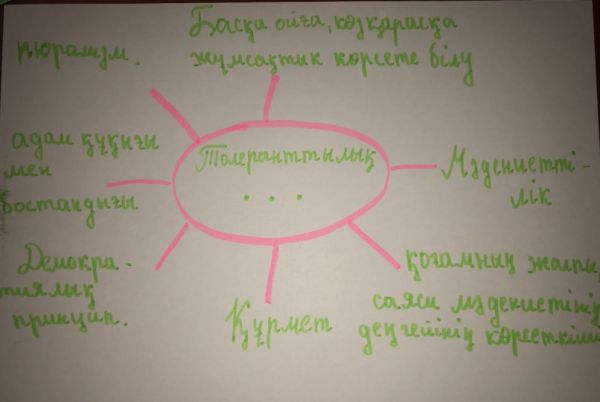 Басқа ойға, көзқарасқа
жұмсақтик көрсете білу
плюрализм.
адам құқығы
мен
бостандығы
Толеранттылық
. . .
Мәдениетті-
лік
Демокра-
тиялық
принцип.
Құрмет
қоғамның жалпы,
саяси мәдениетінің
деңгейінің көрсеткіші